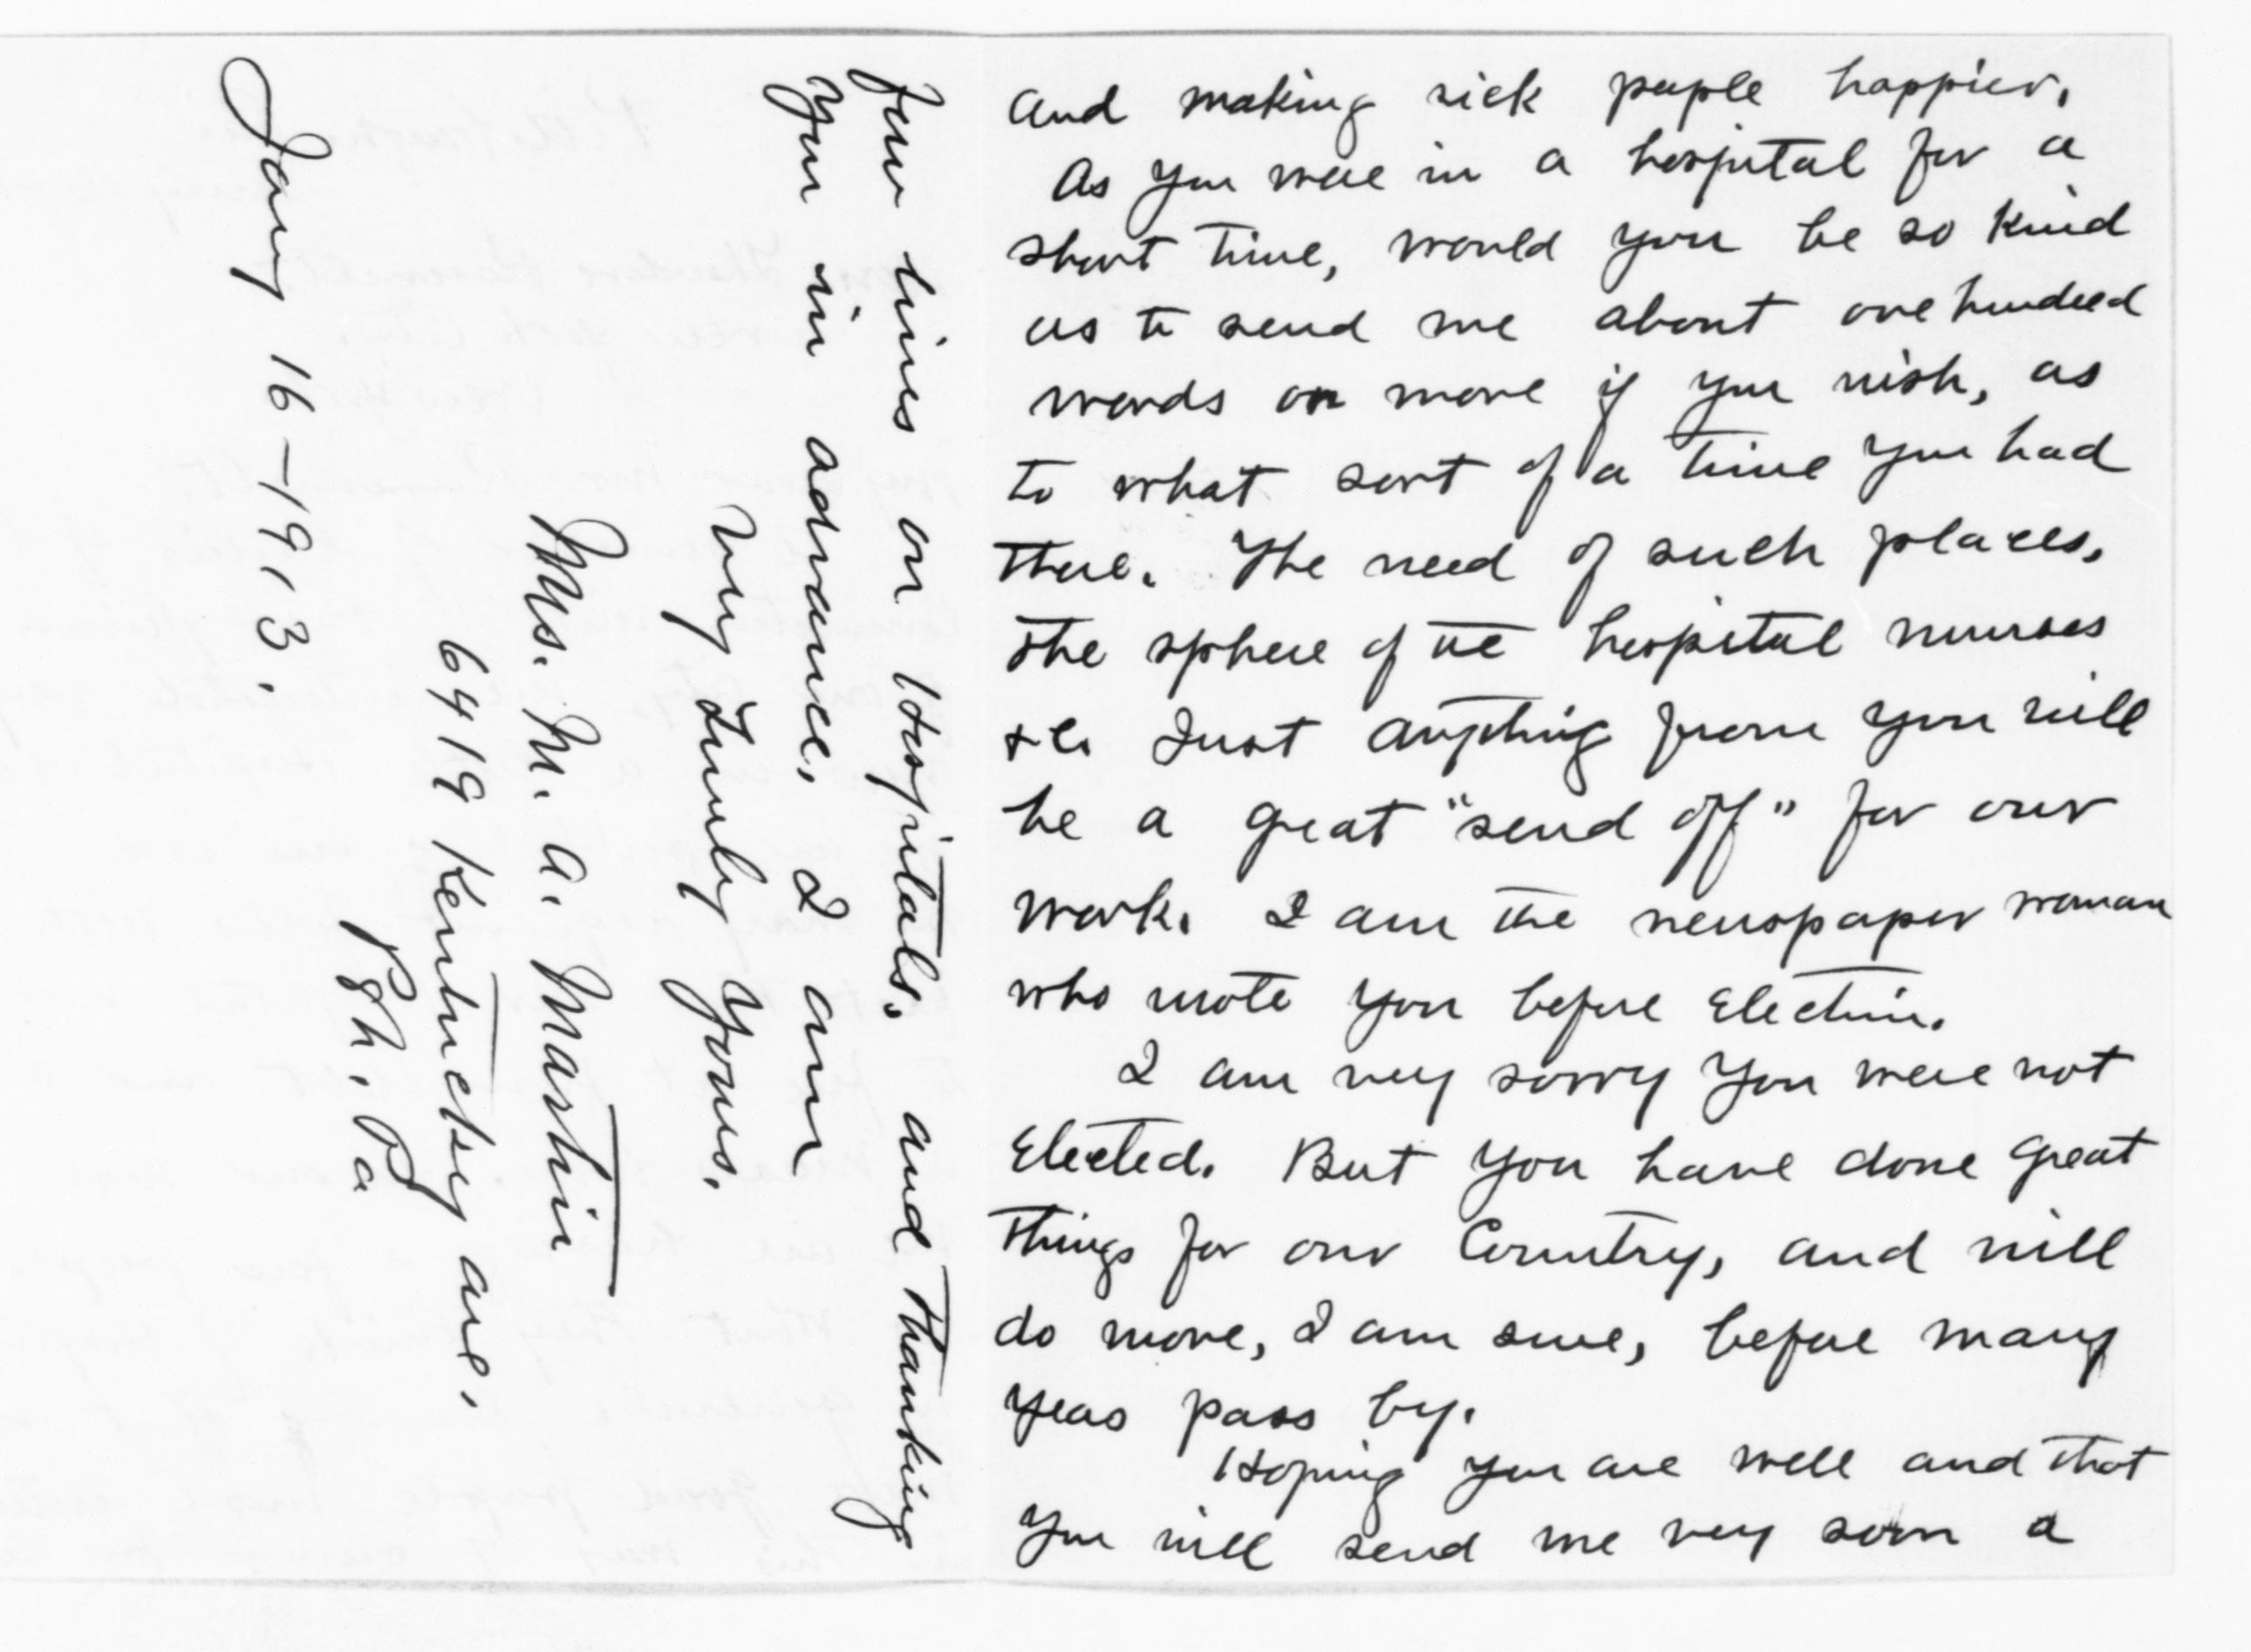 and making sick people happier.
As you were in a hospital for a
short time, would you be so kind
as to send me about one hundred
words or more if you wish, as
to what sort of a time you had
there. The need of such places,
the sphere of the hospital nurses
&c. Just anything from you will
be a great "send off" for our
work. I am the newspaper woman
who wrote you before Election.
I am very sorry you were not
Elected. But you have done great
things for our Country, and will
do more, I am sure, before many
years pass by.
Hoping you are well and that
you will send me very soon a
few lines on Hospitals. and thanking
you in advance, I am
Very Truly Yours.
Mrs. M. A. Martin
6419 Kentucky ave.
Pgh. Pa
Jany 16-1913.